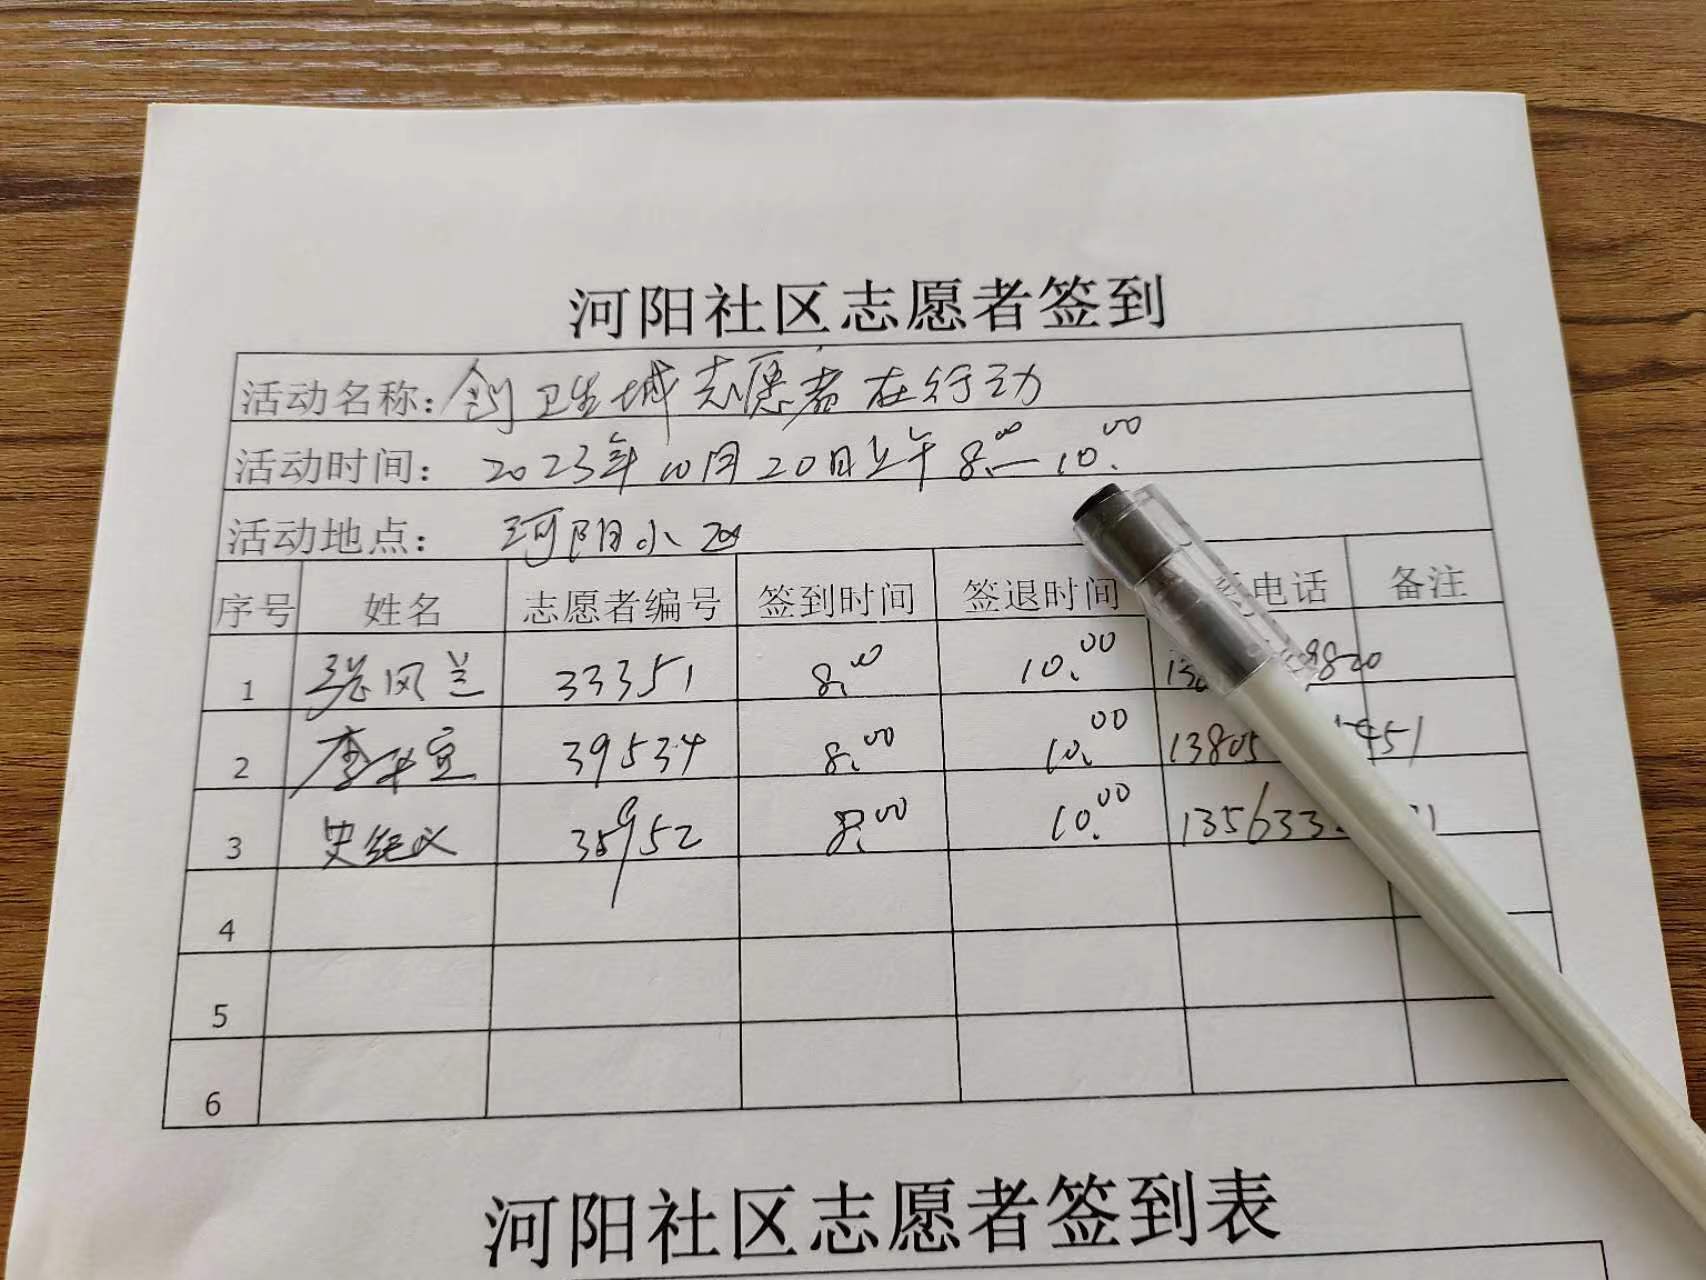 河阳社区志愿者签到
活动名称：创卫生城志愿者在行动
活动时间：2023年10月20日上午8.00—10.00
活动地点：河阳小区
序号 姓名 志愿者编号 签到时间 签退时间 电话 备注
1 张风兰 33351 8.00 10.00
2 李 39534 8.00 10.00 13805 451
3 史纪义 38952 8.00 10.00 135633
4
5
6
河阳社区志愿者签到表